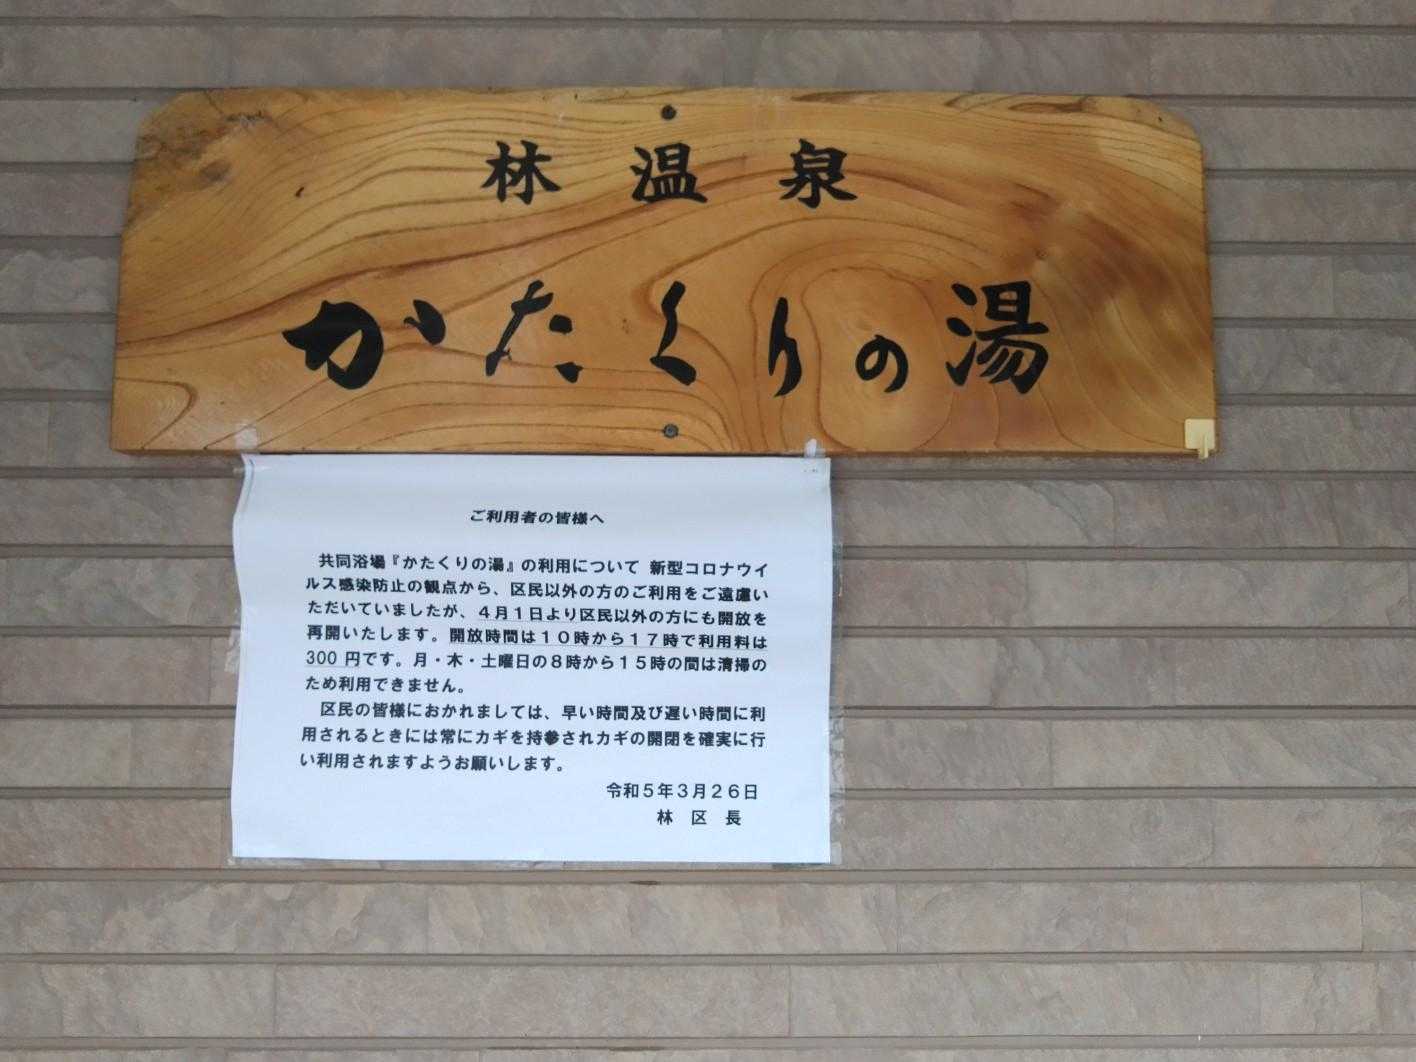 林温泉
かたくりの湯
ご利用者の皆様へ
共同浴場『かたくりの湯』の利用について 新型コロナウイ
ルス感染防止の観点から、区民以外の方のご利用をご遠慮い
ただいていましたが、４月１日より区民以外の方にも開放を
再開いたします。開放時間は１０時から１７時で利用料は
300 円です。月・木・土曜日の８時から１５時の間は清掃の
ため利用できません。
区民の皆様におかれましては、早い時間及び遅い時間に利
用されるときには常にカギを持参されカギの開閉を確実に行
い利用されますようお願いします。
令和５年３月２６日
林 区 長